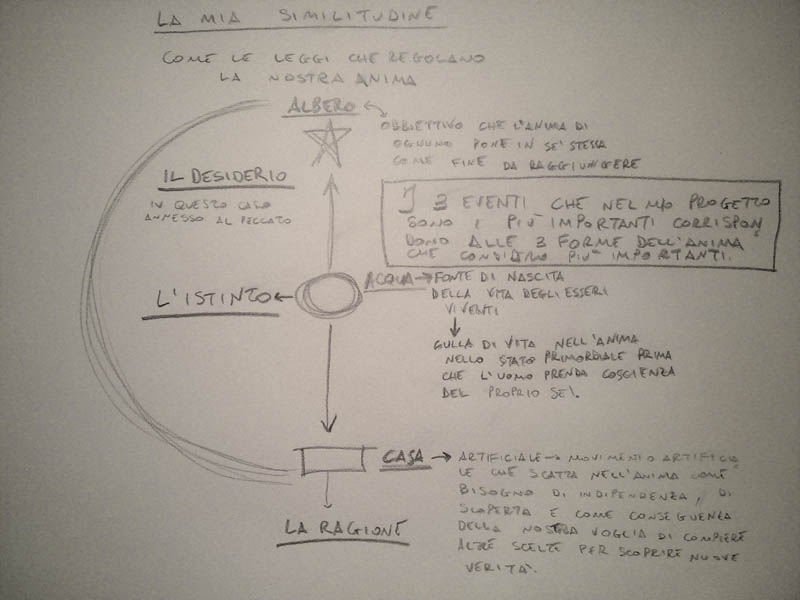 LA MIA SIMILITUDINE
COME LE LEGGI CHE REGOLANO
LA NOSTRA ANIMA
ALBERO
OBBIETTIVO CHE L'ANIMA DI
OGNUNO PONE IN SE' STESSA
COME FINE DA RAGGIUNGERE
IL DESIDERIO
IN QUESTO CASO
ANNESSO AL PECCATO
I 3 EVENTI CHE NEL MIO PROGETTO
SONO I PIU' IMPORTANTI CORRISPON
DONO ALLE 3 FORME DELL'ANIMA
CHE CONSIDERO PIU' IMPORTANTI.
L'ISTINTO
ACQUA → FONTE DI NASCITA
DELLA VITA DEGLI ESSERI
VIVENTI
CULLA DI VITA NELL'ANIMA
NELLO STATO PRIMORDIALE PRIMA
CHE L'UOMO PRENDA COSCIENZA
DEL PROPRIO SE'.
CASA → ARTIFICIALE → MOVIMENTO ARTIFICIA
LE CHE SCATTA NELL'ANIMA COME
BISOGNO DI INDIPENDENZA, DI
SCOPERTA E COME CONSEGUENZA
DELLA NOSTRA VOGLIA DI COMPIERE
ALTRE SCELTE PER SCOPRIRE NUOVE
VERITA'.
LA RAGIONE